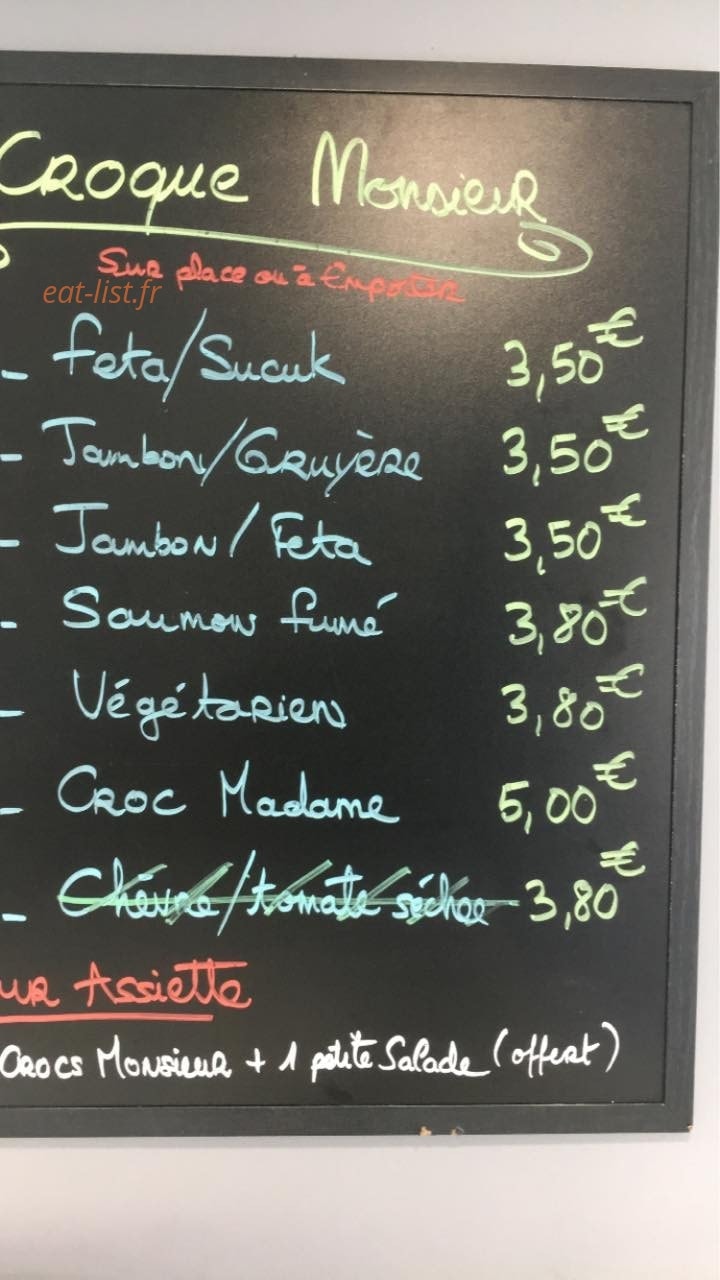 Croque Monsieur
Sur place ou à Emporter
eat-list.fr
- Feta/Sucuk 3,50€
- Jambon/Gruyère 3,50€
- Jambon/Feta 3,50€
- Saumon fumé 3,80€
- Végétarien 3,80€
- Croc Madame 5,00€
- Chèvre/tomate séchée 3,80€
ur Assiette
Crocs Monsieur + 1 petite Salade (offert)